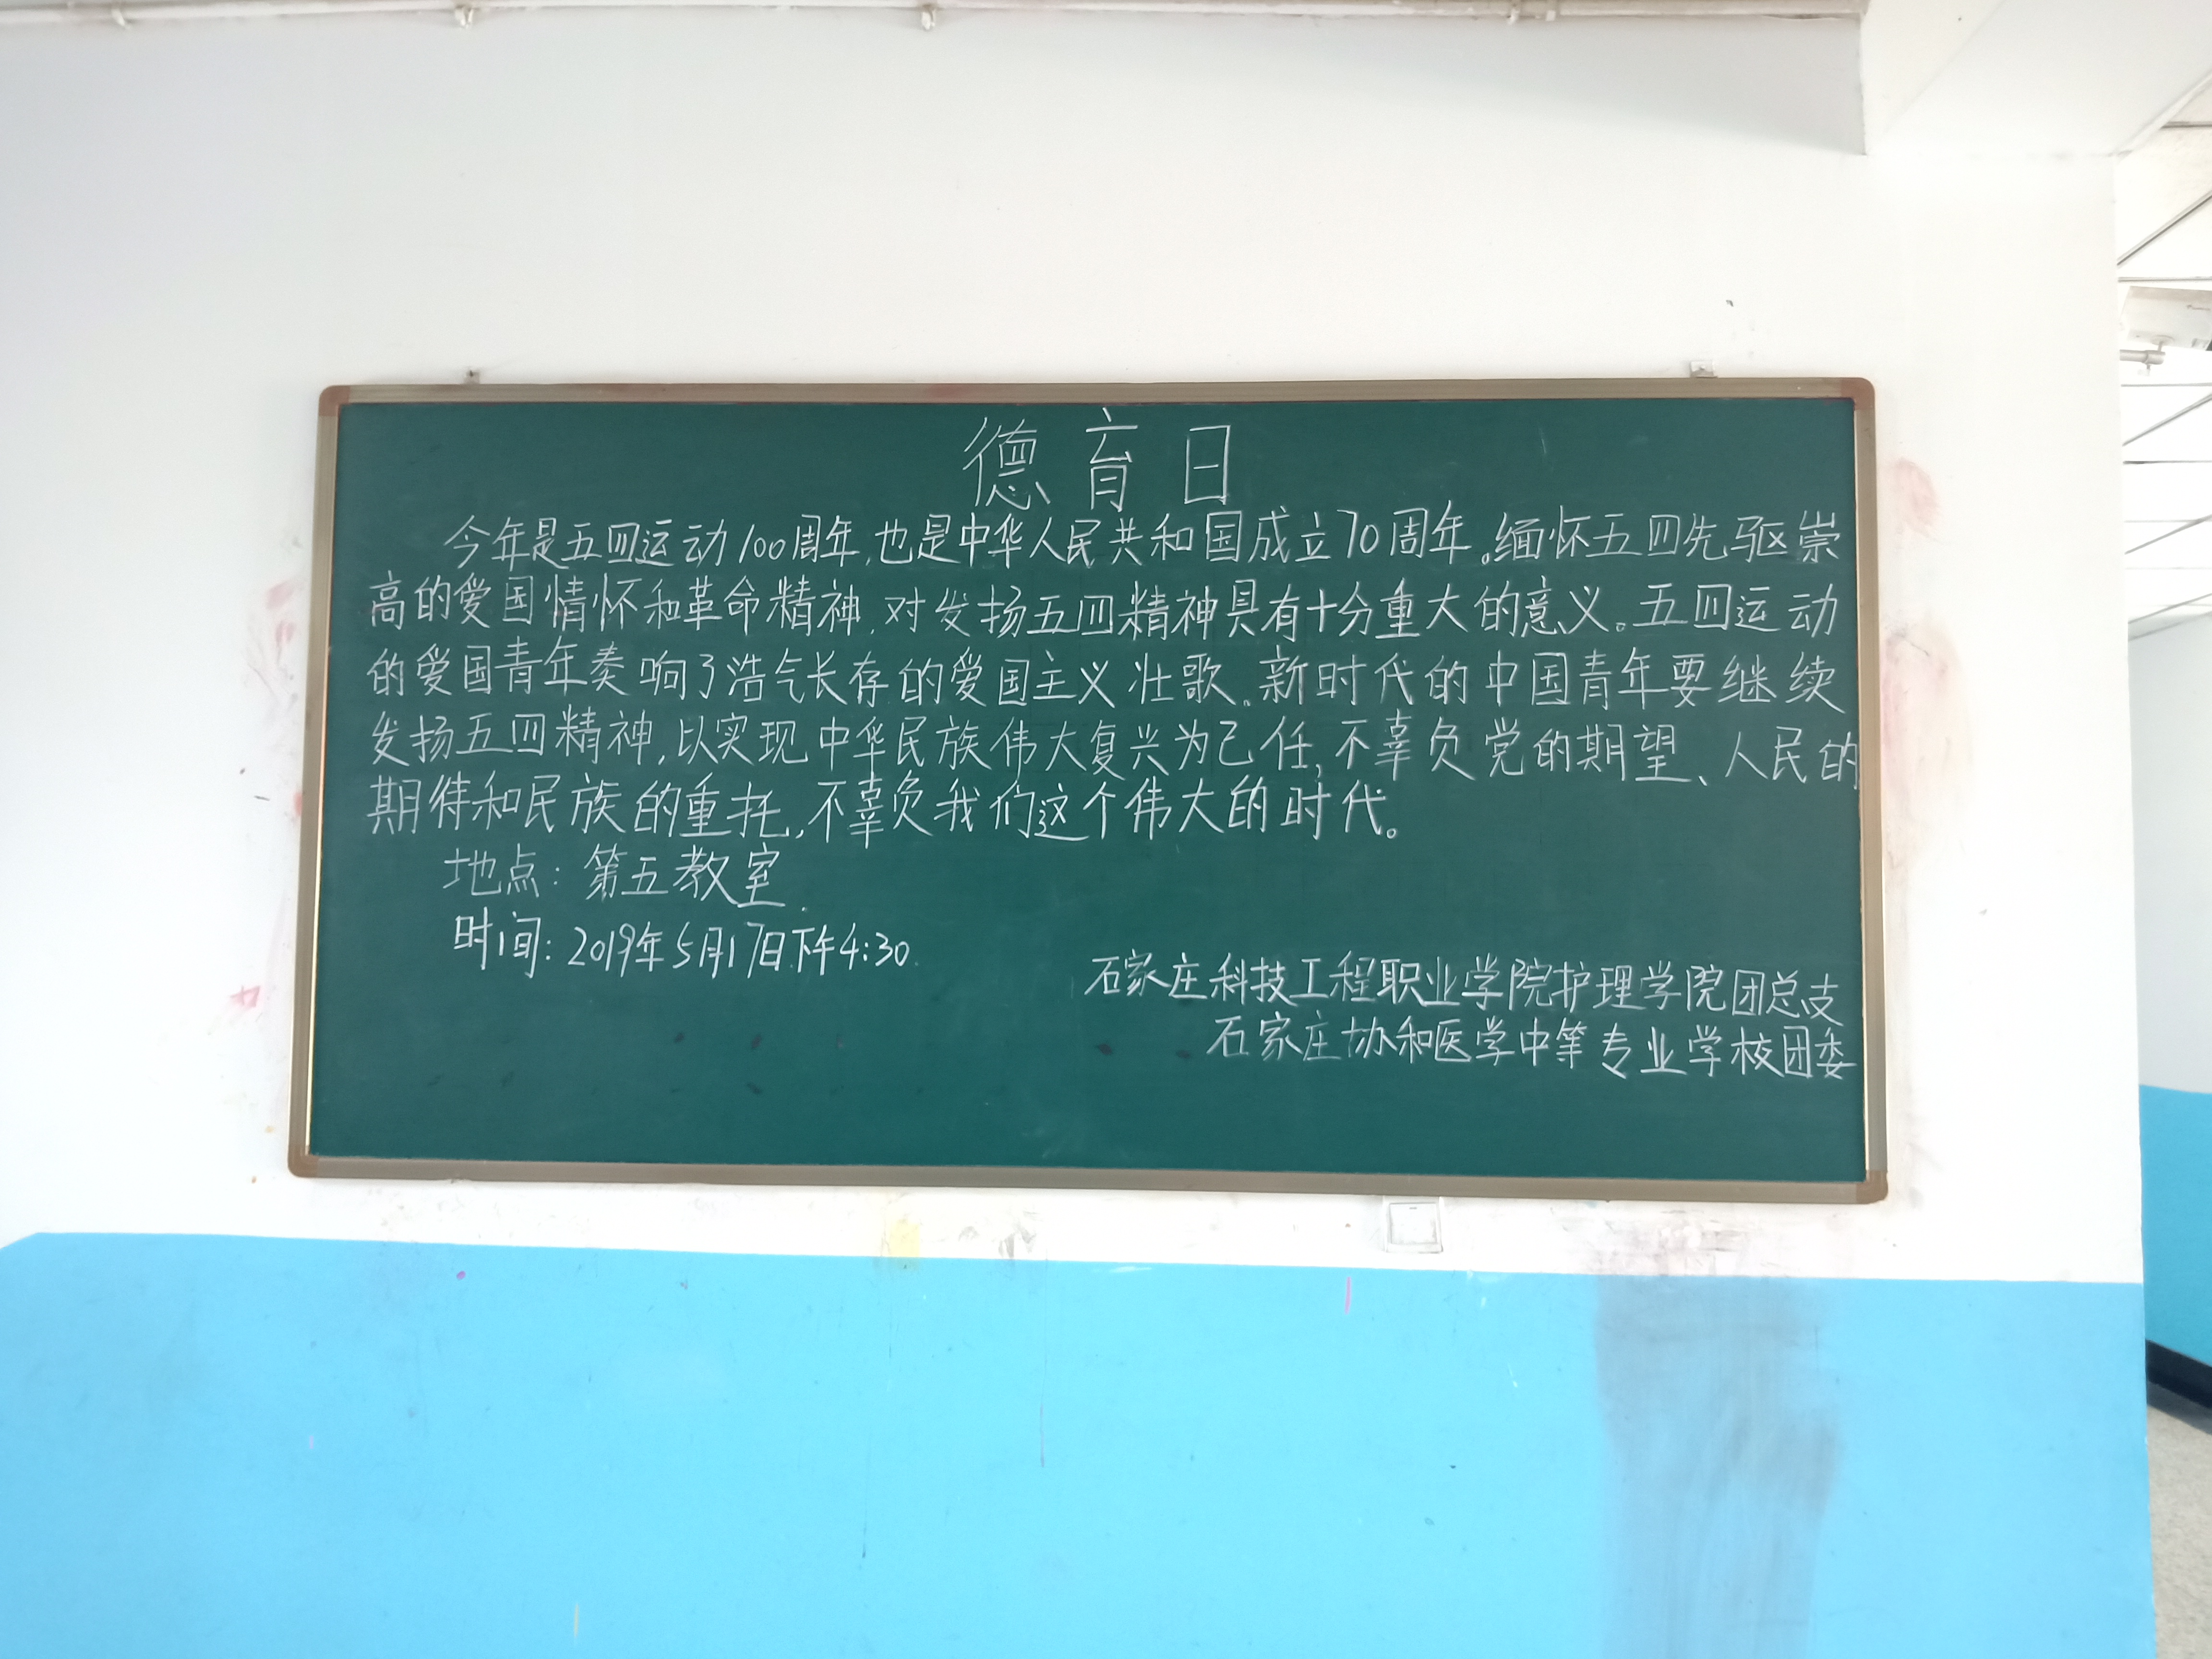 德育日
今年是五四运动100周年,也是中华人民共和国成立70周年。缅怀五四先驱崇
高的爱国情怀和革命精神,对发扬五四精神具有十分重大的意义。五四运动
的爱国青年奏响了浩气长存的爱国主义壮歌。新时代的中国青年要继续
发扬五四精神,以实现中华民族伟大复兴为己任,不辜负党的期望、人民的
期待和民族的重托,不辜负我们这个伟大的时代。
地点:第五教室.
时间:2019年5月17日.下午4:30.
石家庄科技工程职业学院护理学院团总支
石家庄协和医学中等专业学校团委